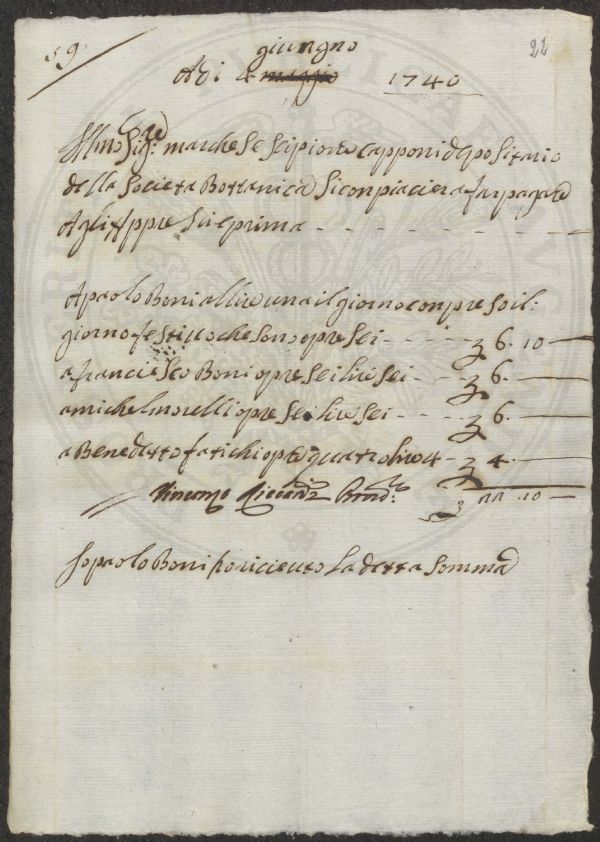 59
22
giungno
Adi 4 maggio 1740
Illmo Sigre: marchese Scipione Capponi depositario
della Societa Bottanica Siconpiaciera far pagare
Agli
Apaolo Boni allire una il giorno conpreso il:
giorno festivo che sono opre Sei - £ 6. 10 —
a franciesco Boni opre Sei lire Sei - £ 6. —
amichel morelli opre Sei lire Sei - £ 6. —
a Benedetto fatichi opre quatro lire 4 - £ 4. —
£ 22. 10 —
Io paolo Boni ho riceuto La detta Somma